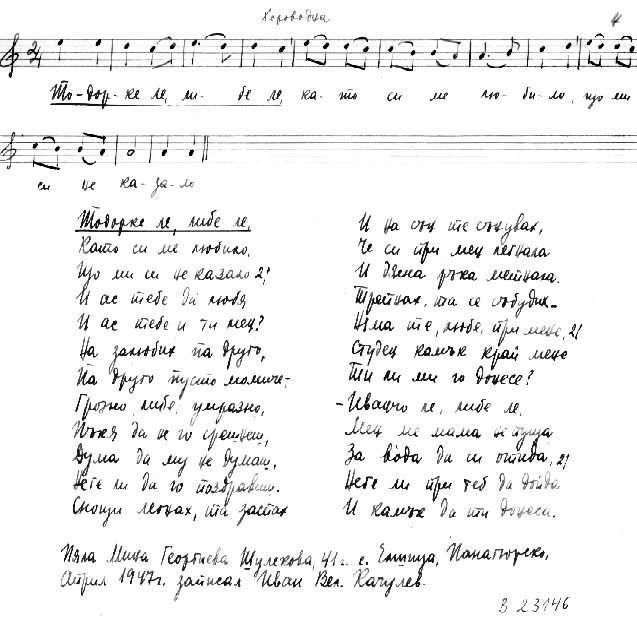 Хороводна
4
То-дор-ке ле, ли- бе ле, ка- то си ме лю- би- ло, що ми
си не ка- за- ло
Тодорке ле, либе ле,
Като си ме любило,
Що ми си не казало 2/
И аз тебе да любя
И аз тебе и ти мен?
На залюбих па друго,
Па друго пусто момиче-
Грозно, либе, умразно,
Пътя да не го срещнеш,
Дума да му не думаш,
Нете ли да го поздравиш.
Снощи легнах, та заспах
И на сън те сънувах,
Че си при мен легнала
И дясна ръка метнала.
Трепнах, та се събудих-
Няма те, любе, при мене, 2/
Студен камък край мене
Ти ли ми го донесе?
-Иванчо ле, либе ле,
Мен ме мама не пуща
За вода да си отида, 2/
Нете ли при теб да дойда
И камък да ти донеса.
Пяла Мина Георгиева Шулекова, 41 г. с. Елшица, Панагюрско,
Април 1947 г. записал Иван Вел. Качулев.
В 23146